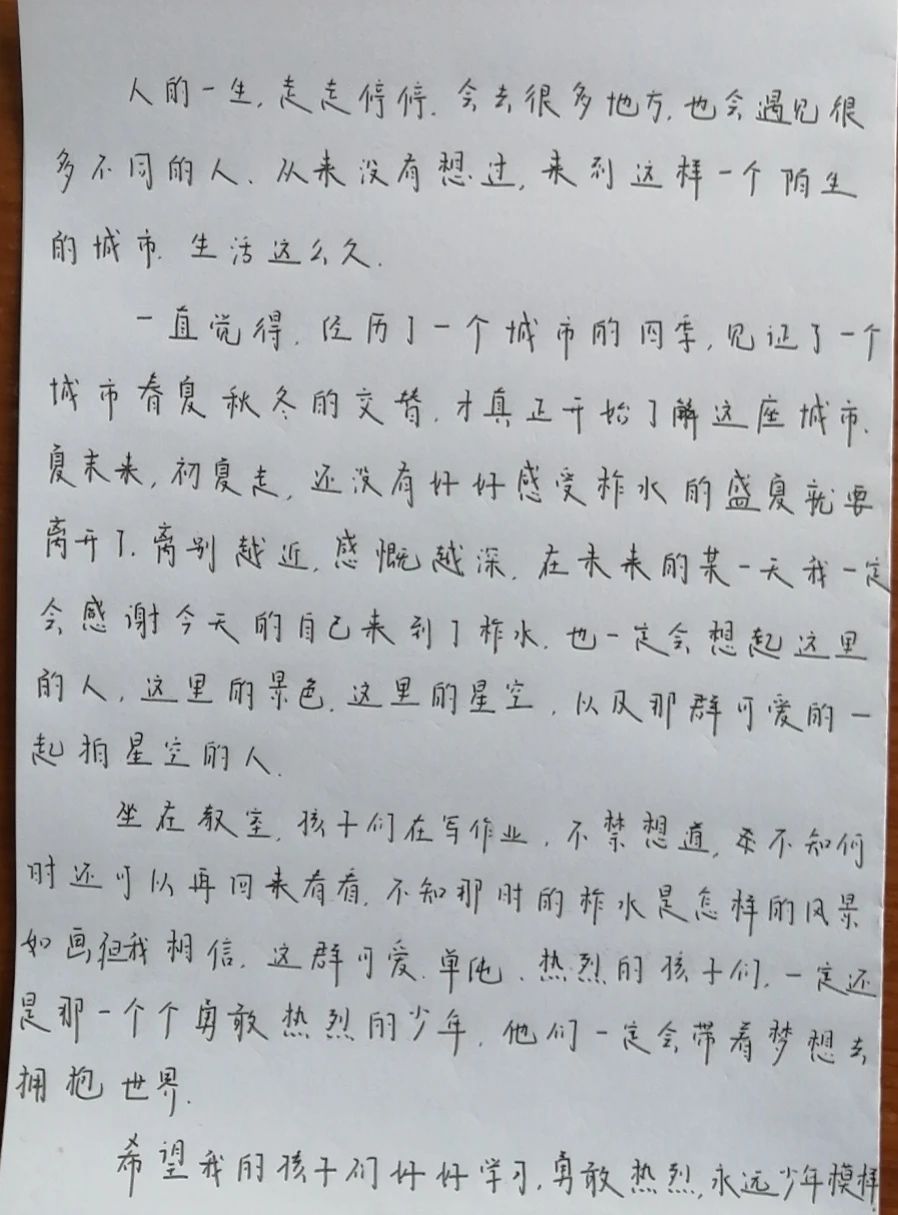 人的一生，走走停停．会去很多地方，也会遇见很
多不同的人、从来没有想过，来到这样一个陌生
的城市．生活这么久．
一直觉得，经历了一个城市的四季，见证了一个
城市春夏秋冬的交替，才真正开始了解这座城市．
夏未来，初夏走，还没有好好感受柞水的盛夏就要
离开了．离别越近，感慨越深．在未来的某一天我一定
会感谢今天的自己来到了柞水．也一定会想起这里
的人，这里的景色，这里的星空，以及那群可爱的一
起拍星空的人．
坐在教室，孩子们在写作业，不禁想道，不知何
时还可以再回来看看，不知那时的柞水是怎样的风景
如画但我相信，这群可爱、单纯、热烈的孩子们，一定还
是那一个个勇敢热烈的少年，他们一定会带着梦想去
拥抱世界．
希望我的孩子们好好学习，勇敢热烈，永远少年模样．